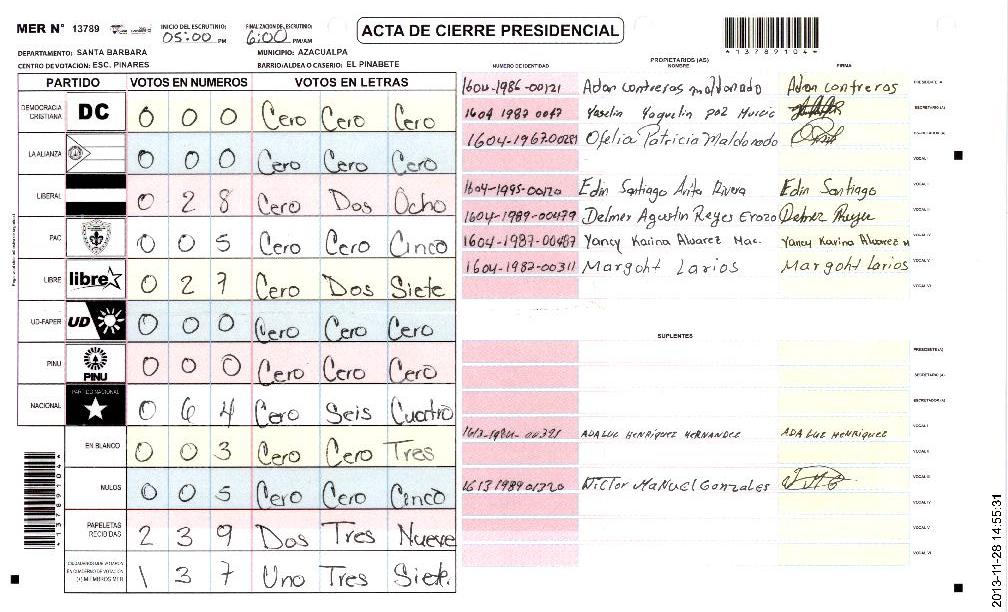 MER N° 13789
INICIO DEL ESCRUTINIO: 05:00 PM
FINALIZACION DEL ESCRUTINIO: 6:00 PM/AM
ACTA DE CIERRE PRESIDENCIAL
*13789104*
DEPARTAMENTO: SANTA BARBARA
MUNICIPIO: AZACUALPA
CENTRO DE VOTACION: ESC. PINARES
BARRIO/ALDEA O CASERIO: EL PINABETE
PARTIDO VOTOS EN NUMEROS VOTOS EN LETRAS
DEMOCRACIA CRISTIANA DC 0 0 0 Cero Cero Cero
LA ALIANZA 0 0 0 Cero Cero Cero
LIBERAL 0 2 8 Cero Dos Ocho
PAC 0 0 5 Cero Cero Cinco
LIBRE libre 0 2 7 Cero Dos Siete
UD-FAPER UD 0 0 0 Cero Cero Cero
PINU PINU 0 0 0 Cero Cero Cero
NACIONAL PARTIDO NACIONAL 0 6 4 Cero Seis Cuatro
EN BLANCO 0 0 3 Cero Cero Tres
NULOS 0 0 5 Cero Cero Cinco
PAPELETAS RECIBIDAS 2 3 9 Dos Tres Nueve
CIUDADANOS QUE VOTARON EN CUADERNO DE VOTACION (+) MIEMBROS MER 1 3 7 Uno Tres Siete.
*13789104*
PROPIETARIOS (AS)
NUMERO DE IDENTIDAD NOMBRE FIRMA
1604-1986-00121 Adan contreras maldonado Adan contreras PRESIDENTE (A)
1604 1987 0047 Yaselin Yaquelin paz SECRETARIO (A)
1604-1967-00281 Ofelia Patricia Maldonado
VOCAL I
1604-1995-00120 Edin Santiago Rivera Edin Santiago VOCAL II
1604-1989-00479 Delmer Agustin Reyes Erazo Delmer Reyes VOCAL III
1604-1987-00487 Yancy Karina Alvarez Mac. Yancy Karina Alvarez M VOCAL IV
1604-1982-00311 Margoht Larios Margoht Larios VOCAL V
VOCAL VI
SUPLENTES
PRESIDENTE (A)
SECRETARIO (A)
ESCRUTADOR (A)
00395 ADALUZ HENRIQUEZ HERNANDEZ ADA LUZ HENRIQUEZ VOCAL I
VOCAL II
1613 1989 01320 Victor Manuel Gonzales VOCAL III
VOCAL IV
VOCAL V
VOCAL VI
2013-11-28 14:55:31